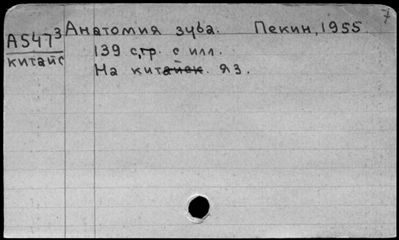 7
А5473 Анатомия зуба. Пекин, 1955.
китайс 139 стр. с илл.
На китайск. яз.